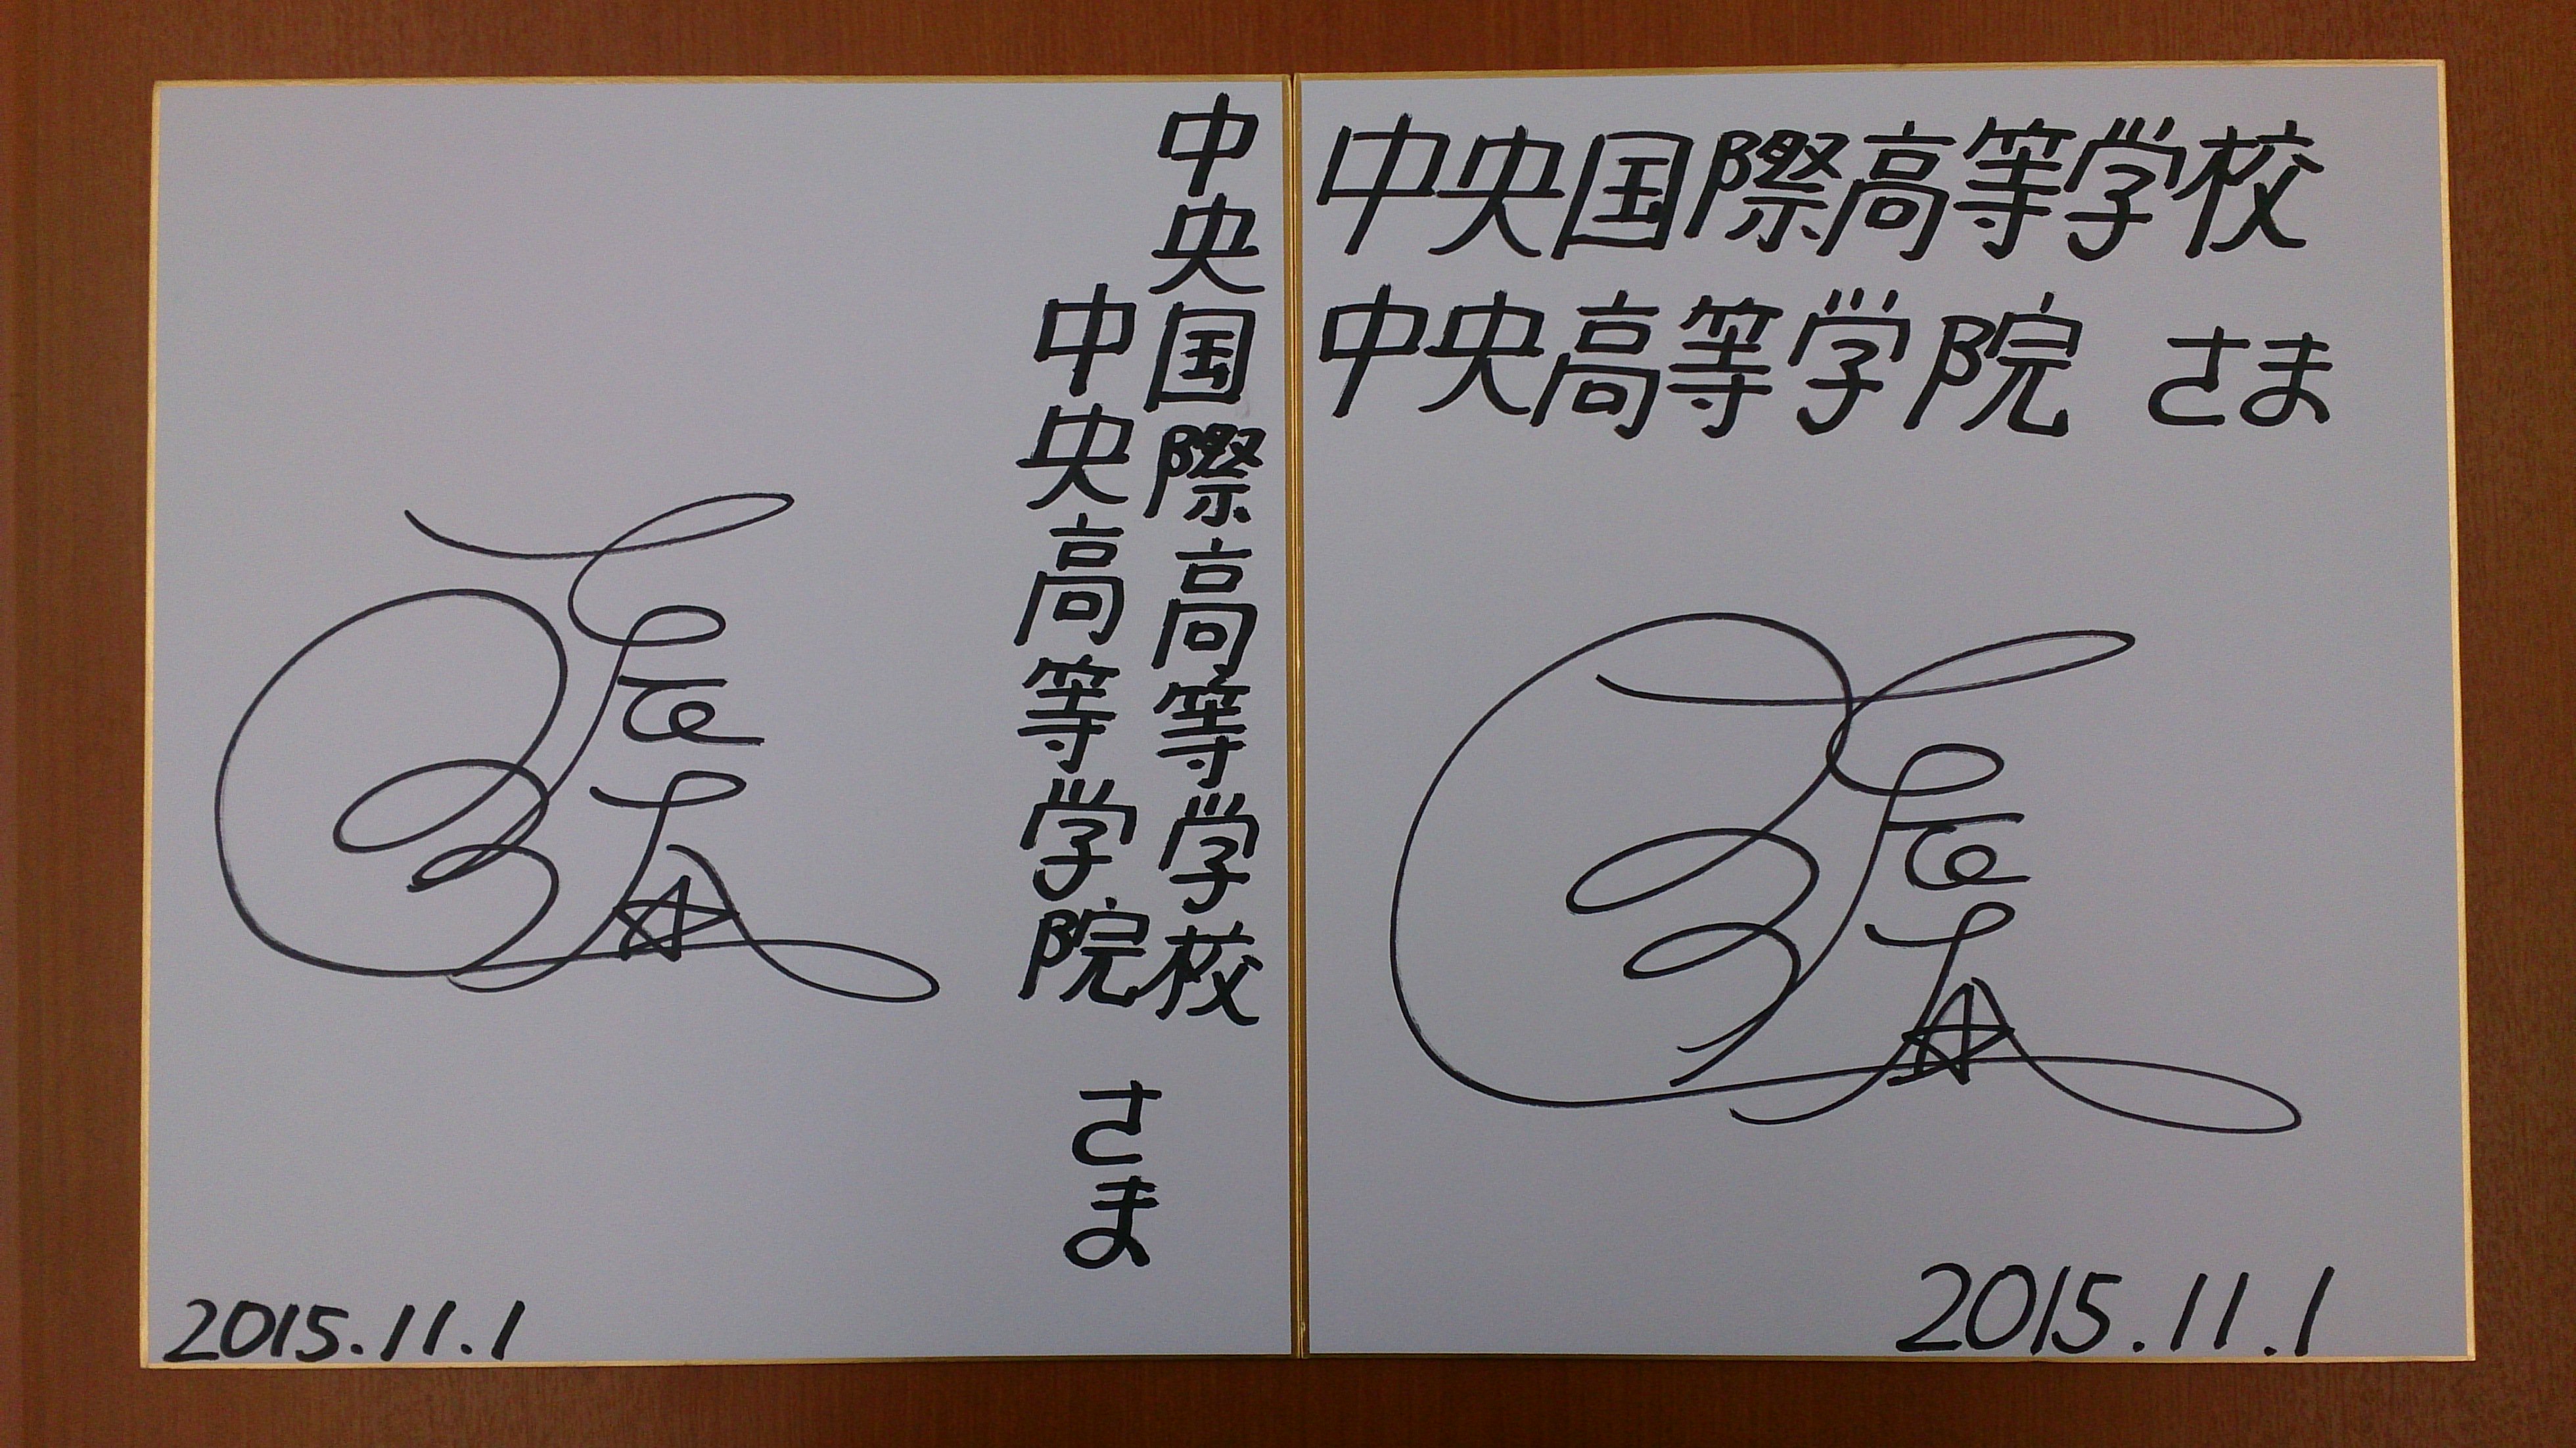 中央国際高等学校
中央高等学院
さま
2015.11.1
中央国際高等学校
中央高等学院 さま
2015.11.1